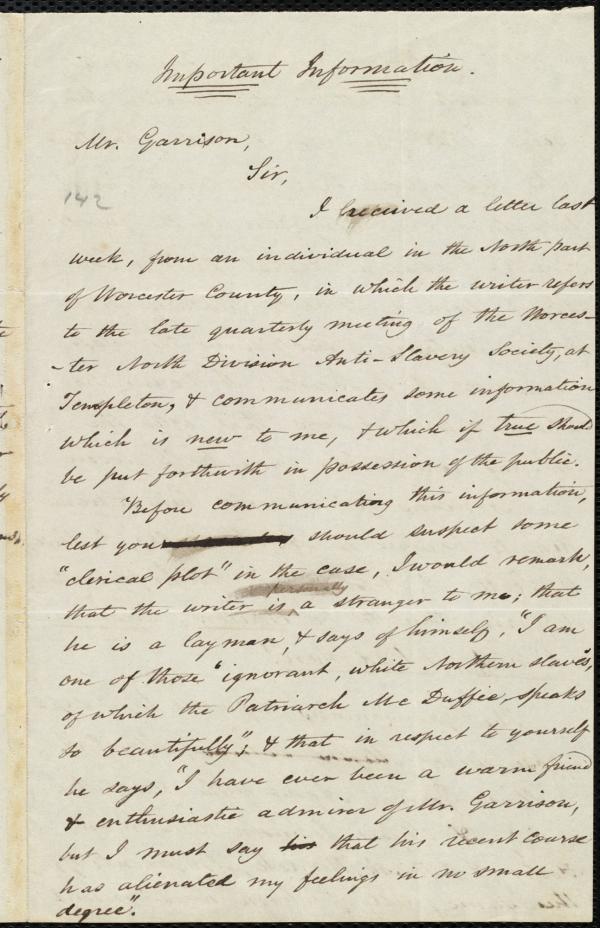 Important Information.
Mr. Garrison,
Sir,
142
I received a letter last
week, from an individual in the North part
of Worcester County, in which the writer refers
to the late quarterly meeting of the Worces-
-ter North Division Anti-Slavery Society, at
Templeton, & communicates some information
which is new to me, & which if true should
be put forthwith in possession of the public.
Before communicating this information,
lest you should suspect some
"clerical plot" in the case, I would remark,
that the writer is personally a stranger to me; that
he is a layman, & says of himself, "I am
one of those "ignorant, white Northern slaves",
of which the Patriarch Mc Duffee, speaks
so beautifully"; & that in respect to yourself
he says, "I have ever been a warm friend
& enthusiastic admirer of Mr. Garrison,
but I must say that his recent course
has alienated my feelings in no small
degree".